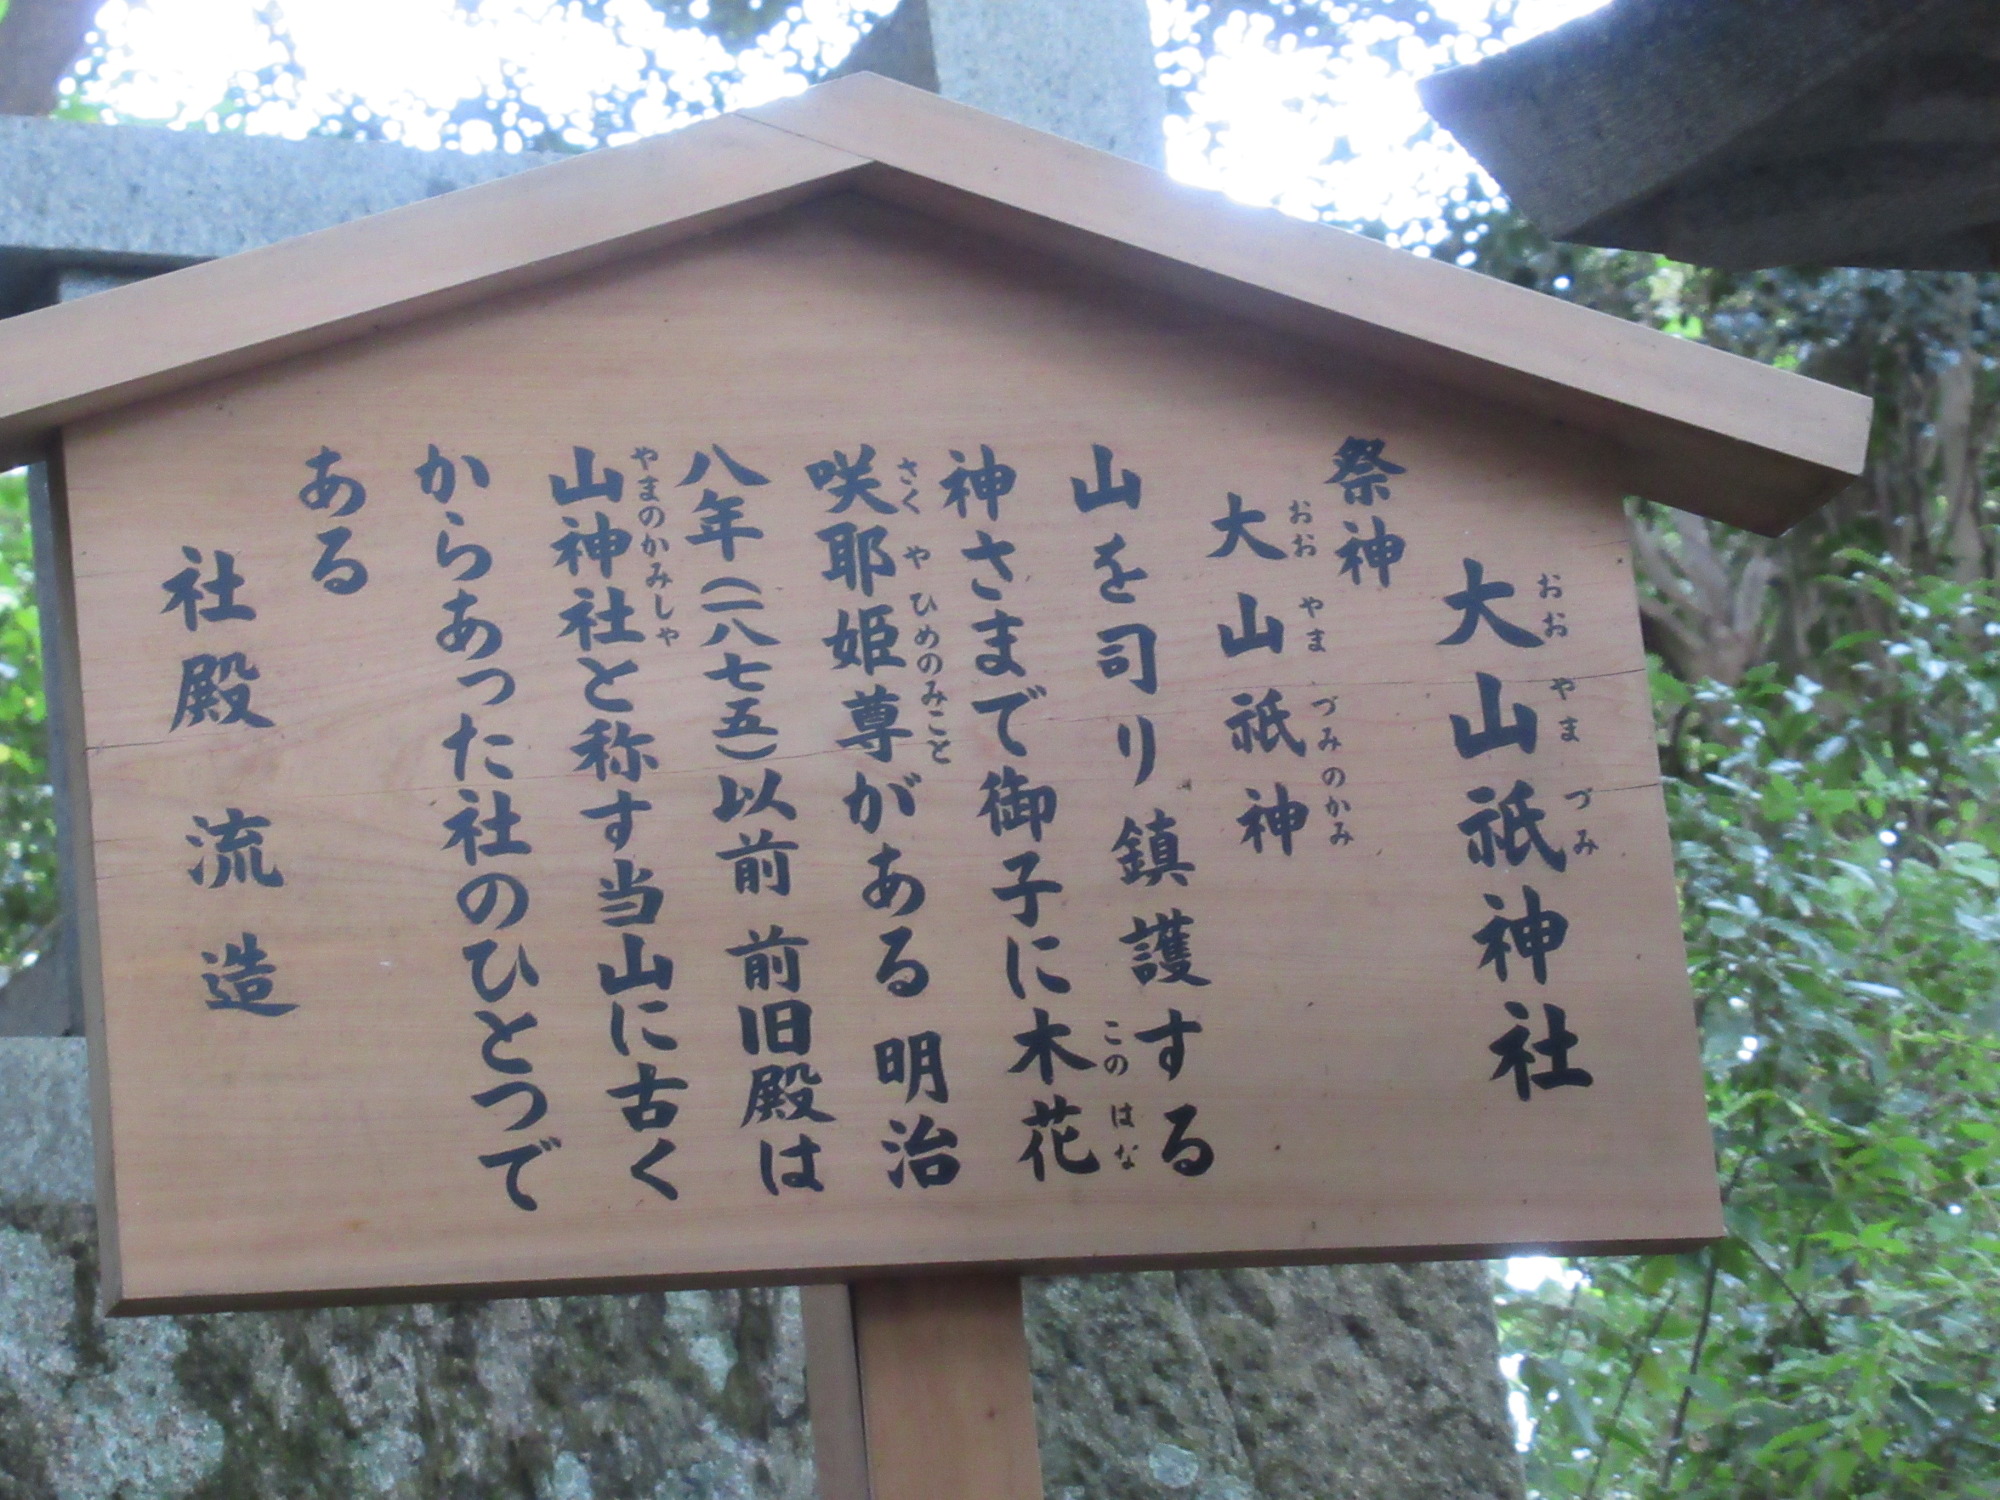 大山祇神社
おおやまづみ
祭神
大山祇神
おおやまづみのかみ
山を司り鎮護する
神さまで御子に木花
このはな
咲耶姫尊がある 明治
さくやひめのみこと
八年(一八七五)以前 前旧殿は
山神社と称す当山に古く
やまのかみしゃ
からあった社のひとつで
ある
社殿 流造